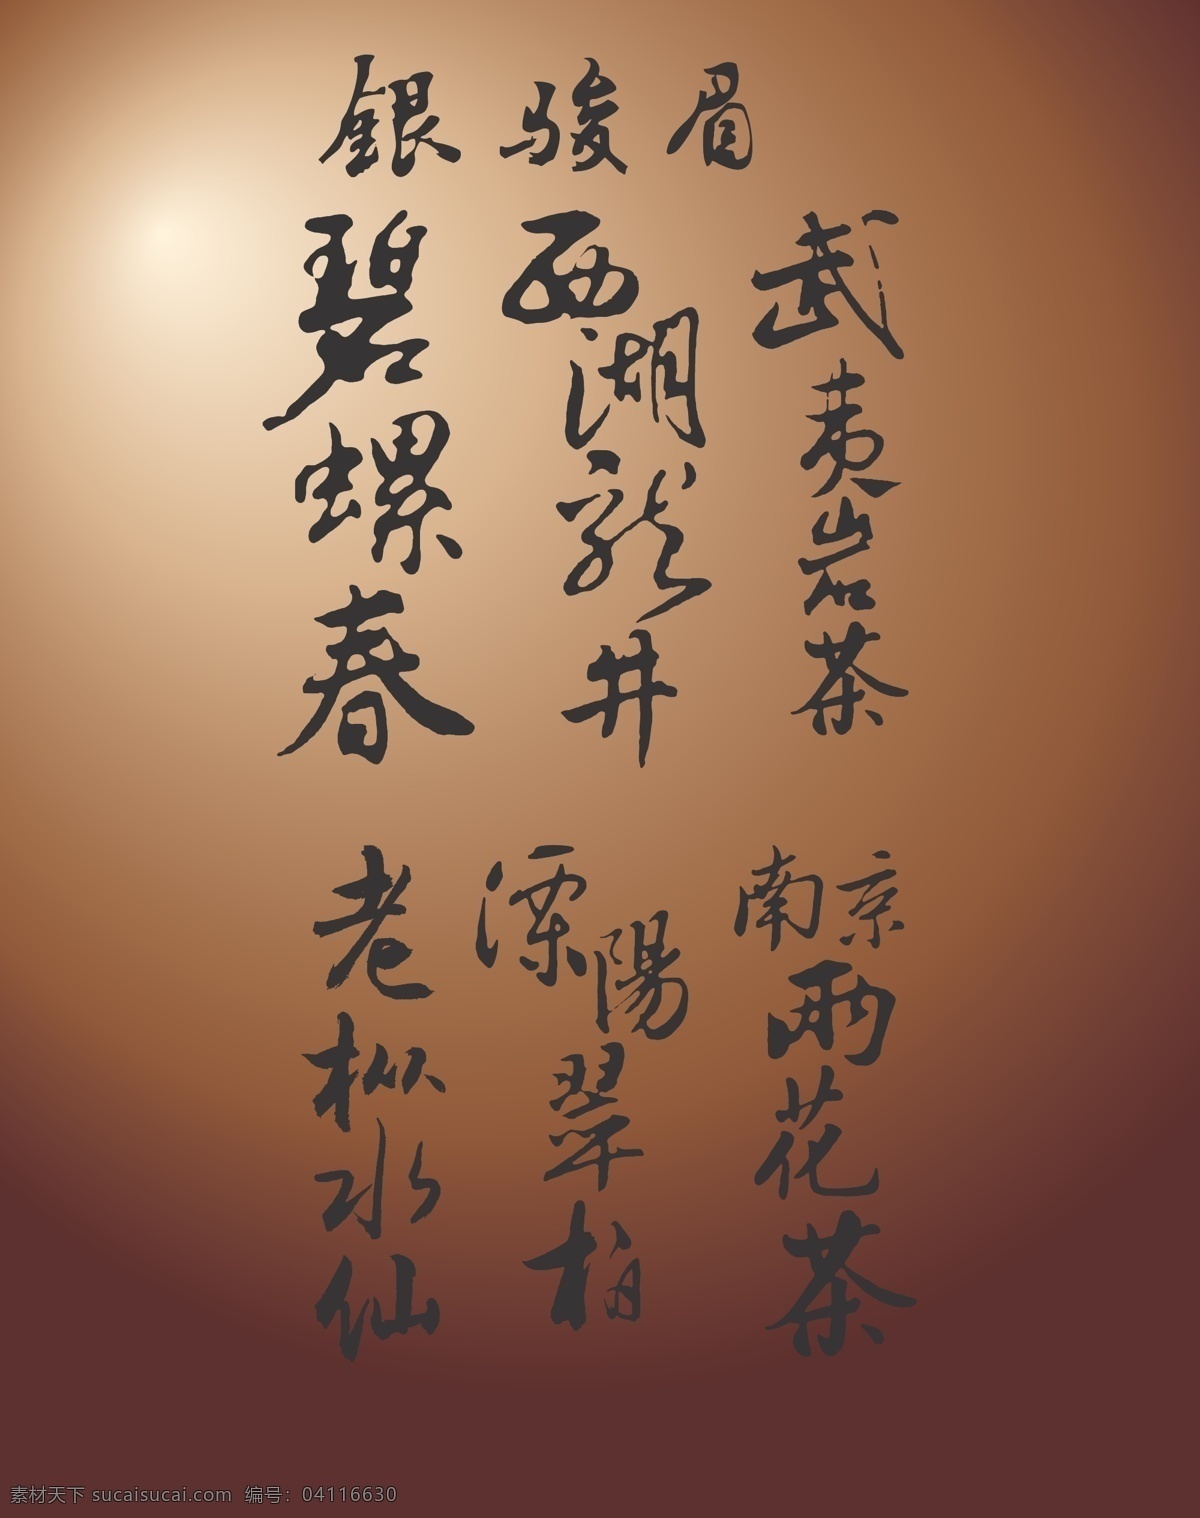 銀骏眉
碧螺春
西湖龍井
武夷岩茶
老枞水仙
溧陽翠柏
南京雨花茶
素材天下 sucaisucai.com 编号：04116630